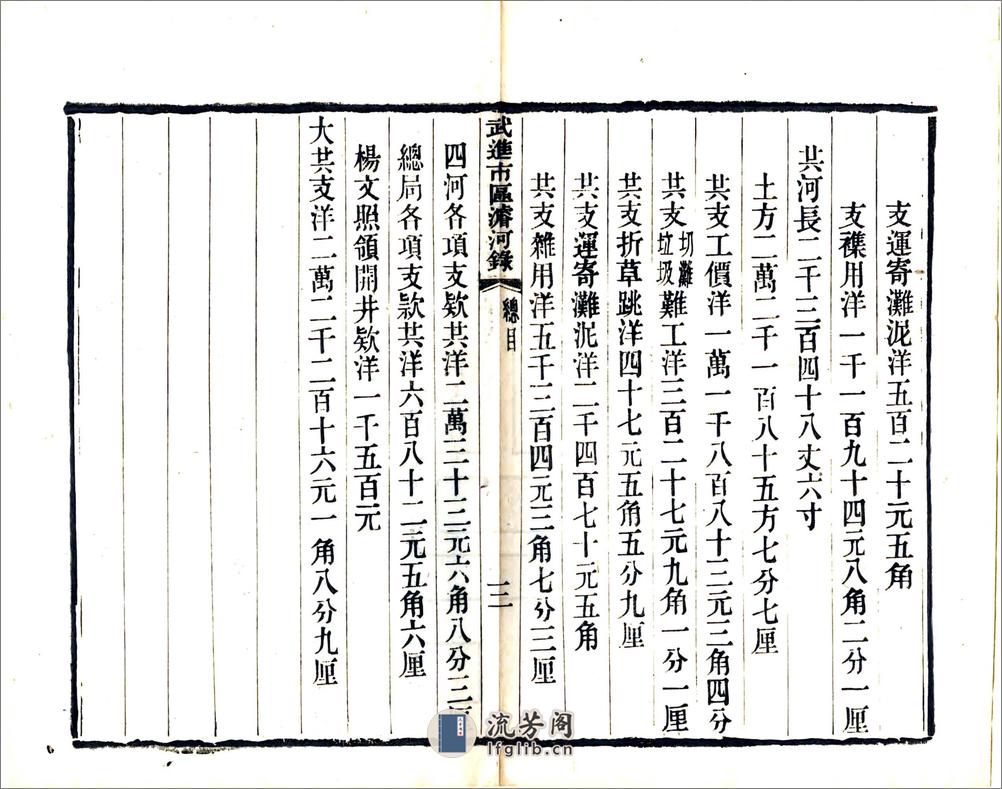 支運寄灘泥洋五百二十元五角
支襍用洋一千一百九十四元八角二分一厘
共河長二千三百四十八丈六寸
土方二萬二千一百八十五方七分七厘
共支工價洋一萬一千八百八十三元三角四分
共支切灘垃圾難工洋三百二十七元九角一分一厘
共支折草跳洋四十七元五角五分九厘
共支運寄灘泥洋二千四百七十元五角
共支雜用洋五千三百四元三角七分三厘
武進市區濬河錄 總目 三
四河各項支欵共洋二萬三十三元六角八分三厘
總局各項支款共洋六百八十二元五角六厘
楊文照領開井欵洋一千五百元
大共支洋二萬二千二百十六元一角八分九厘
流芳阁
lfglib.cn